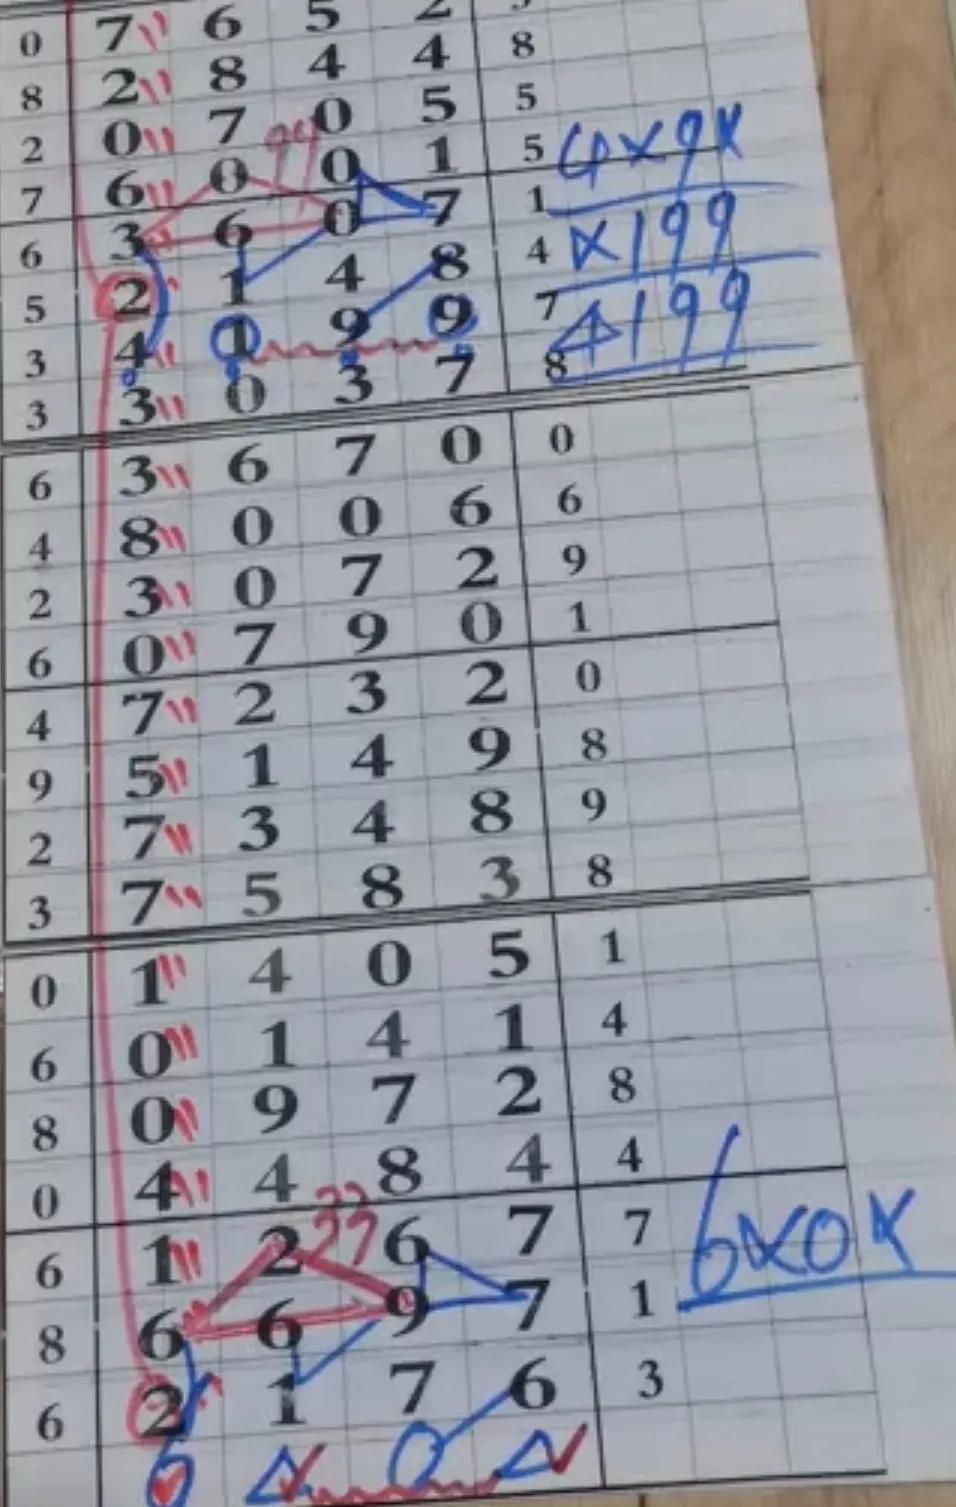 0 7 6 5 2
8 2 8 4 4 8
2 0 7 0 5 5
7 6 0 0 1 5
99
4x9x
6 3 6 0 7 1
x199
5 2 1 4 8 4
4199
3 4 1 9 9 7
3 3 0 3 7 8
6 3 6 7 0 0
4 8 0 0 6 6
2 3 0 7 2 9
6 0 7 9 0 1
4 7 2 3 2 0
9 5 1 4 9 8
2 7 3 4 8 9
3 7 5 8 3 8
0 1 4 0 5 1
6 0 1 4 1 4
8 0 9 7 2 8
0 4 4 8 4 4
33
6 1 2 6 7 7
6x0x
8 6 6 9 7 1
6 2 1 7 6 3